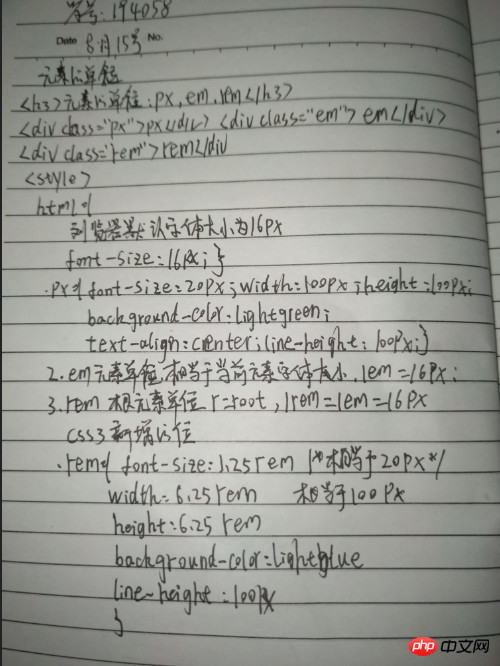 学号:194058
Date 8月15号 No.
元素的单位
<h3>元素的单位:px,em,rem</h3>
<div class="px">px</div> <div class="em">em</div>
<div class="rem">rem</div
<style>
html{
浏览器默认字体大小为16px
font-size:16px;}
.px{font-size:20px;width:100px;height:100px;
background-color:lightgreen;
text-align:center;line-height:100px;}
2.em元素单位,相当于当前元素字体大小,1em=16px;
3.rem 根元素单位 r=root,1rem=1em=16px
css3新增的位
.rem{ font-size:1.25rem /*相当于20px*/
width=6.25rem 相当于100px
height:6.25 rem
background-color:lightblue
line-height:100px
}
php 中文网